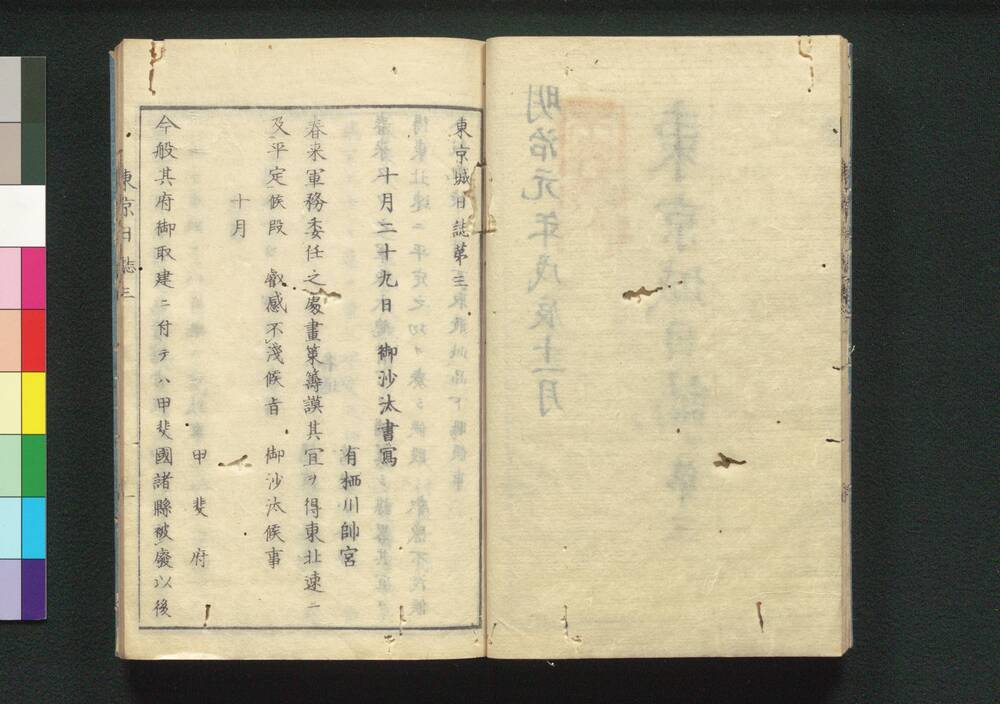 東京城日誌第三
十月二十九日御沙汰書寫
有栖川帥宮
春来軍務委任之處畫策籌謨其宜ヲ得東北速ニ
及平定候段　叡感不淺候旨　御沙汰候事
十月
甲斐府
今般其府御取建ニ付テハ甲斐國諸縣被廢以後
東京日誌三